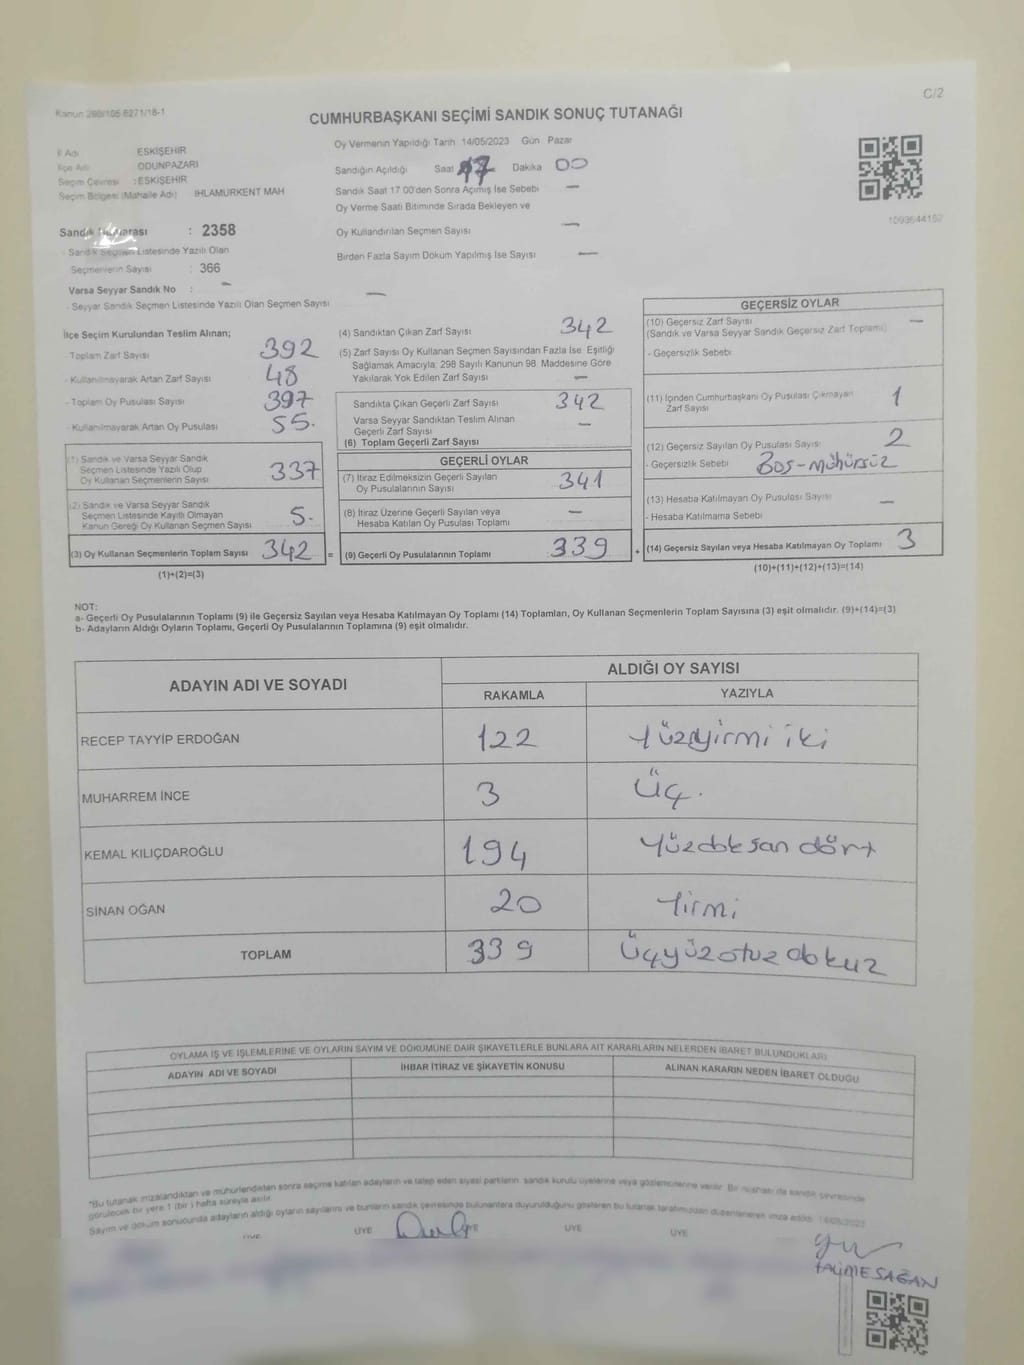 C/2
Kanun 298/105 6271/18-1
CUMHURBAŞKANI SEÇİMİ SANDIK SONUÇ TUTANAĞI
İl Adı ESKİŞEHİR
İlçe Adı ODUNPAZARI
Seçim Çevresi : ESKİŞEHİR
Seçim Bölgesi (Mahalle Adı) IHLAMURKENT MAH
Sandık Numarası : 2358
- Sandık Seçmen Listesinde Yazılı Olan
Seçmenlerin Sayısı : 366
Varsa Seyyar Sandık No : -
- Seyyar Sandık Seçmen Listesinde Yazılı Olan Seçmen Sayısı -
Oy Vermenin Yapıldığı Tarih 14/05/2023 Gün Pazar
Sandığın Açıldığı Saat 17 Dakika 00
Sandık Saat 17:00'den Sonra Açılmış İse Sebebi -
Oy Verme Saati Bitiminde Sırada Bekleyen ve
Oy Kullandırılan Seçmen Sayısı -
Birden Fazla Sayım Döküm Yapılmış İse Sayısı -
1093644192
İlçe Seçim Kurulundan Teslim Alınan;
- Toplam Zarf Sayısı 392
- Kullanılmayarak Artan Zarf Sayısı 48
- Toplam Oy Pusulası Sayısı 397
- Kullanılmayarak Artan Oy Pusulası 55.
(1) Sandık ve Varsa Seyyar Sandık
Seçmen Listesinde Yazılı Olup
Oy Kullanan Seçmenlerin Sayısı 337
(2) Sandık ve Varsa Seyyar Sandık
Seçmen Listesinde Kayıtlı Olmayan
Kanun Gereği Oy Kullanan Seçmen Sayısı 5.
(3) Oy Kullanan Seçmenlerin Toplam Sayısı 342 =
(1)+(2)=(3)
(4) Sandıktan Çıkan Zarf Sayısı 342
(5) Zarf Sayısı Oy Kullanan Seçmen Sayısından Fazla İse Eşitliği
Sağlamak Amacıyla, 298 Sayılı Kanunun 98. Maddesine Göre
Yakılarak Yok Edilen Zarf Sayısı -
Sandıkta Çıkan Geçerli Zarf Sayısı 342
Varsa Seyyar Sandıktan Teslim Alınan
Geçerli Zarf Sayısı -
(6) Toplam Geçerli Zarf Sayısı
GEÇERLİ OYLAR
(7) İtiraz Edilmeksizin Geçerli Sayılan
Oy Pusulalarının Sayısı 341
(8) İtiraz Üzerine Geçerli Sayılan veya
Hesaba Katılan Oy Pusulası Toplamı -
(9) Geçerli Oy Pusulalarının Toplamı 339 +
GEÇERSİZ OYLAR
(10) Geçersiz Zarf Sayısı -
(Sandık ve Varsa Seyyar Sandık Geçersiz Zarf Toplamı)
- Geçersizlik Sebebi
(11) İçinden Cumhurbaşkanı Oy Pusulası Çıkmayan
Zarf Sayısı 1
(12) Geçersiz Sayılan Oy Pusulası Sayısı 2
- Geçersizlik Sebebi Boş-mühürsüz
(13) Hesaba Katılmayan Oy Pusulası Sayısı -
- Hesaba Katılmama Sebebi
(14) Geçersiz Sayılan veya Hesaba Katılmayan Oy Toplamı 3
(10)+(11)+(12)+(13)=(14)
NOT:
a- Geçerli Oy Pusulalarının Toplamı (9) ile Geçersiz Sayılan veya Hesaba Katılmayan Oy Toplamı (14) Toplamları, Oy Kullanan Seçmenlerin Toplam Sayısına (3) eşit olmalıdır. (9)+(14)=(3)
b- Adayların Aldığı Oyların Toplamı, Geçerli Oy Pusulalarının Toplamına (9) eşit olmalıdır.
ADAYIN ADI VE SOYADI ALDIĞI OY SAYISI
RAKAMLA YAZIYLA
RECEP TAYYİP ERDOĞAN 122 Yüzyirmi iki
MUHARREM İNCE 3 Üç.
KEMAL KILIÇDAROĞLU 194 Yüzdoksan dört
SİNAN OĞAN 20 Yirmi
TOPLAM 339 Üçyüzotuz dokuz
OYLAMA İŞ VE İŞLEMLERİNE VE OYLARIN SAYIM VE DÖKÜMÜNE DAİR ŞİKAYETLERLE BUNLARA AİT KARARLARIN NELERDEN İBARET BULUNDUKLARI
ADAYIN ADI VE SOYADI İHBAR İTİRAZ VE ŞİKAYETİN KONUSU ALINAN KARARIN NEDEN İBARET OLDUĞU
*Bu tutanak imzalandıktan ve mühürlendikten sonra seçime katılan adayların ve talep eden siyasi partilerin sandık kurulu üyelerine veya gözlemcilerine verilir. Bir nüshası da sandık çevresinde
görülecek bir yere 1 (bir) hafta süreyle asılır.
Sayım ve döküm sonucunda adayların aldığı oyların sayılarını ve bunların sandık çevresinde bulunanlara duyurulduğunu gösteren bu tutanak tarafımızdan düzenlenerek imza edildi. 14/05/2023
ÜYE ÜYE ÜYE ÜYE ÜYE